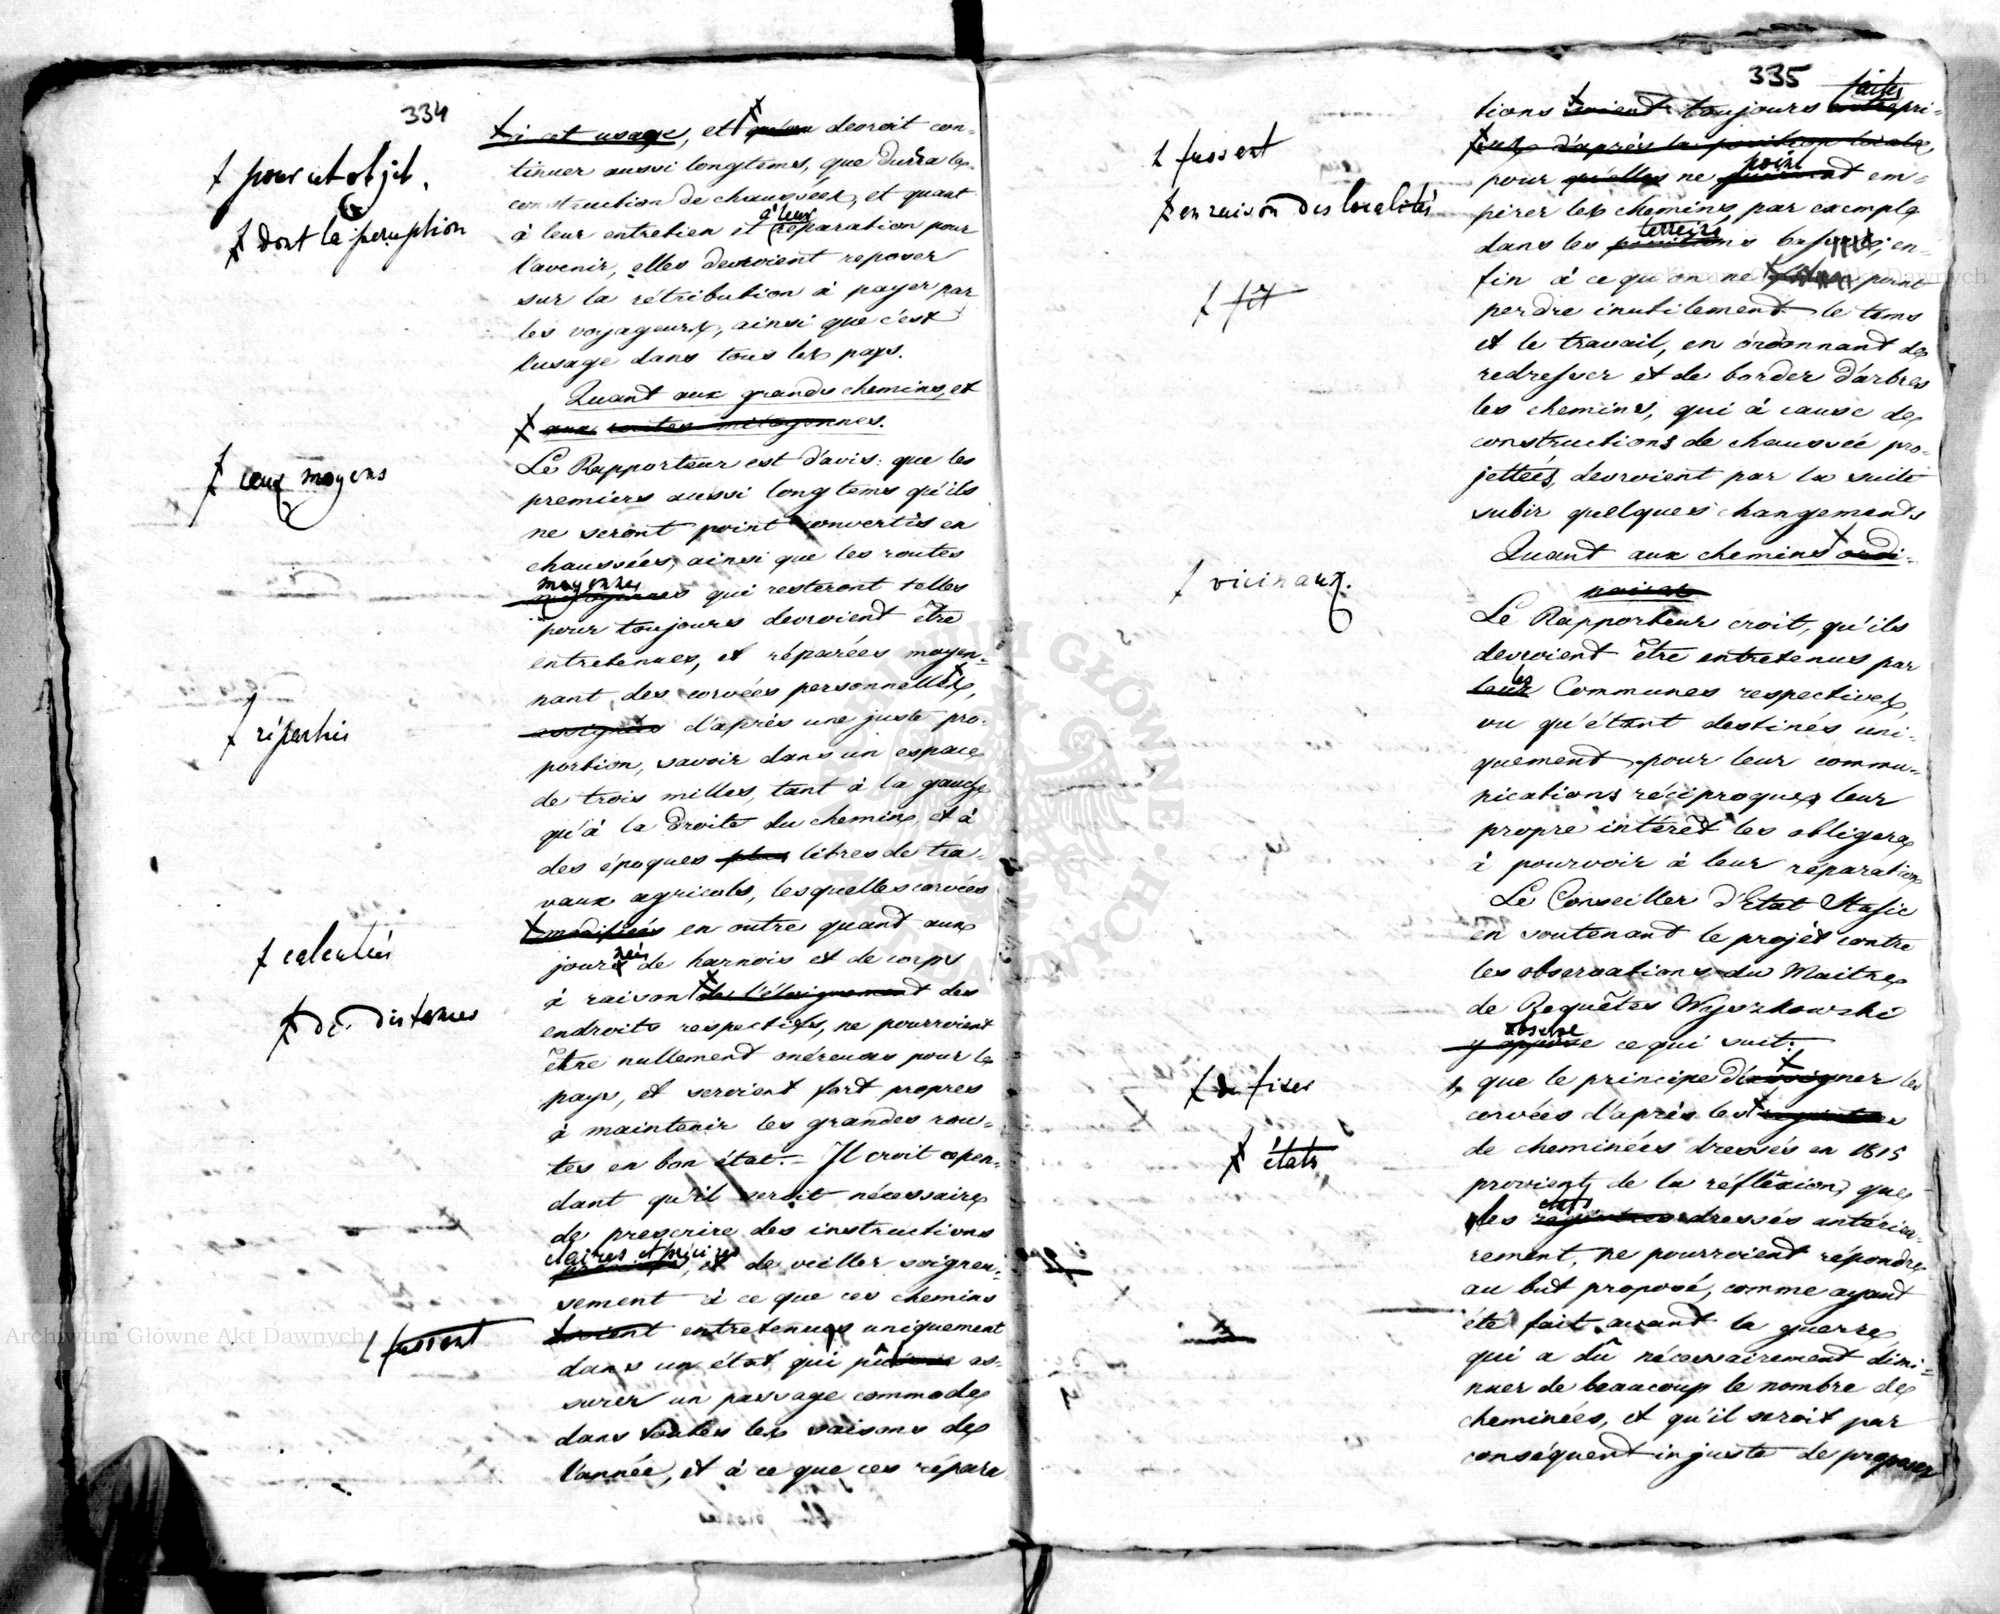 334
ꝉ pour cet objet.
ꝉ dont la perception
ꝉ ceux moyens
ꝉ répartis
ꝉ calculés
ꝉ de distances
ꝉ fussent
à cet usage, et qu'on devroit con-
tinuer aussi longtems, que durera la
construction de chaussées, et quant
à leur
à leur entretien et réparation pour
l'avenir, elles devroient reposer
sur la rétribution à payer par
les voyageurs, ainsi que c'est
l'usage dans tous les pays.
Quant aux grands chemins, et
aux routes mitoyennes.
Le Rapporteur est d'avis: que les
premiers aussi longtems qu'ils
ne seront point convertis en
chaussées, ainsi que les routes
moyennes
mitoyennes qui resteront telles
pour toujours devroient être
entretenues, et réparées moyen-
nant des corvées personnelles,
assignés d'après une juste pro-
portion, savoir dans un espace
de trois milles, tant à la gauche
qu'à la droite du chemin, et à
des époques plus libres de tra-
vaux agricols, lesquelles corvées
modifiées en outre quant aux
nées
jours de harnois et de corps
à raison de l'éloignement des
endroits respectifs, ne pourroient
être nullement onéreuses pour le
pays, et seroient fort propres
à maintenir les grandes rou-
tes en bon état. – Il croit cepen-
dant qu'il seroit nécessaire
de prescrire des instructions
claires et précises
, et de veiller soigneu-
sement à ce que ces chemins
soient entretenus uniquement
dans un état qui pût as-
surer un passage commode
dans toutes les saisons de
l'année, et à ce que ces répara
335
ꝉ fussent
ꝉ en raison des localités
ꝉ fit
ꝉ vicinaux.
ꝉ de fixer
ꝉ états
faites
tions soient toujours entrepri-
ses d'après la position locale,
point
pour qu'elles ne em-
pirer les chemins, par exemple
terreins
dans les positions basses; en-
fin à ce qu'on ne point
perdre inutilement le tems
et le travail, en ordonnant de
redresser et de border d'arbres
les chemins, qui à cause de
constructions de chaussée pro-
jettées, devroient par la suite
subir quelques changemens
Quant aux chemins ordi-
naires
Le Rapporteur croit, qu'ils
devroient être entretenus par
les
leur Communes respectives,
vu qu'étant destinés uni-
quement pour leur commu-
nications réciproques leur
propre intérêt les obligera
à pourvoir à leur réparation
Le Conseiller d'Etat Stasic
en soutenant le projet contre
les observations du Maitre
de Requêtes Wyszkowski
observe
y oppose ce qui suit:
1, que le principe d'assigner les
corvées d'après les registres
de cheminées dressés en 1815
provient de la réflexion, que
états
les registres dressés antérieu-
rement, ne pourroient répondre
au but proposé, comme ayant
été fait avant la guerre
qui a dû nécessairement dimi-
nuer de beaucoup le nombre de
cheminées, et qu'il seroit par
conséquent injuste de proposer
Archiwum Główne Akt Dawnych
Archiwum Główne Akt Dawnych
ARCHIWUM GŁÓWNE AKT DAWNYCH